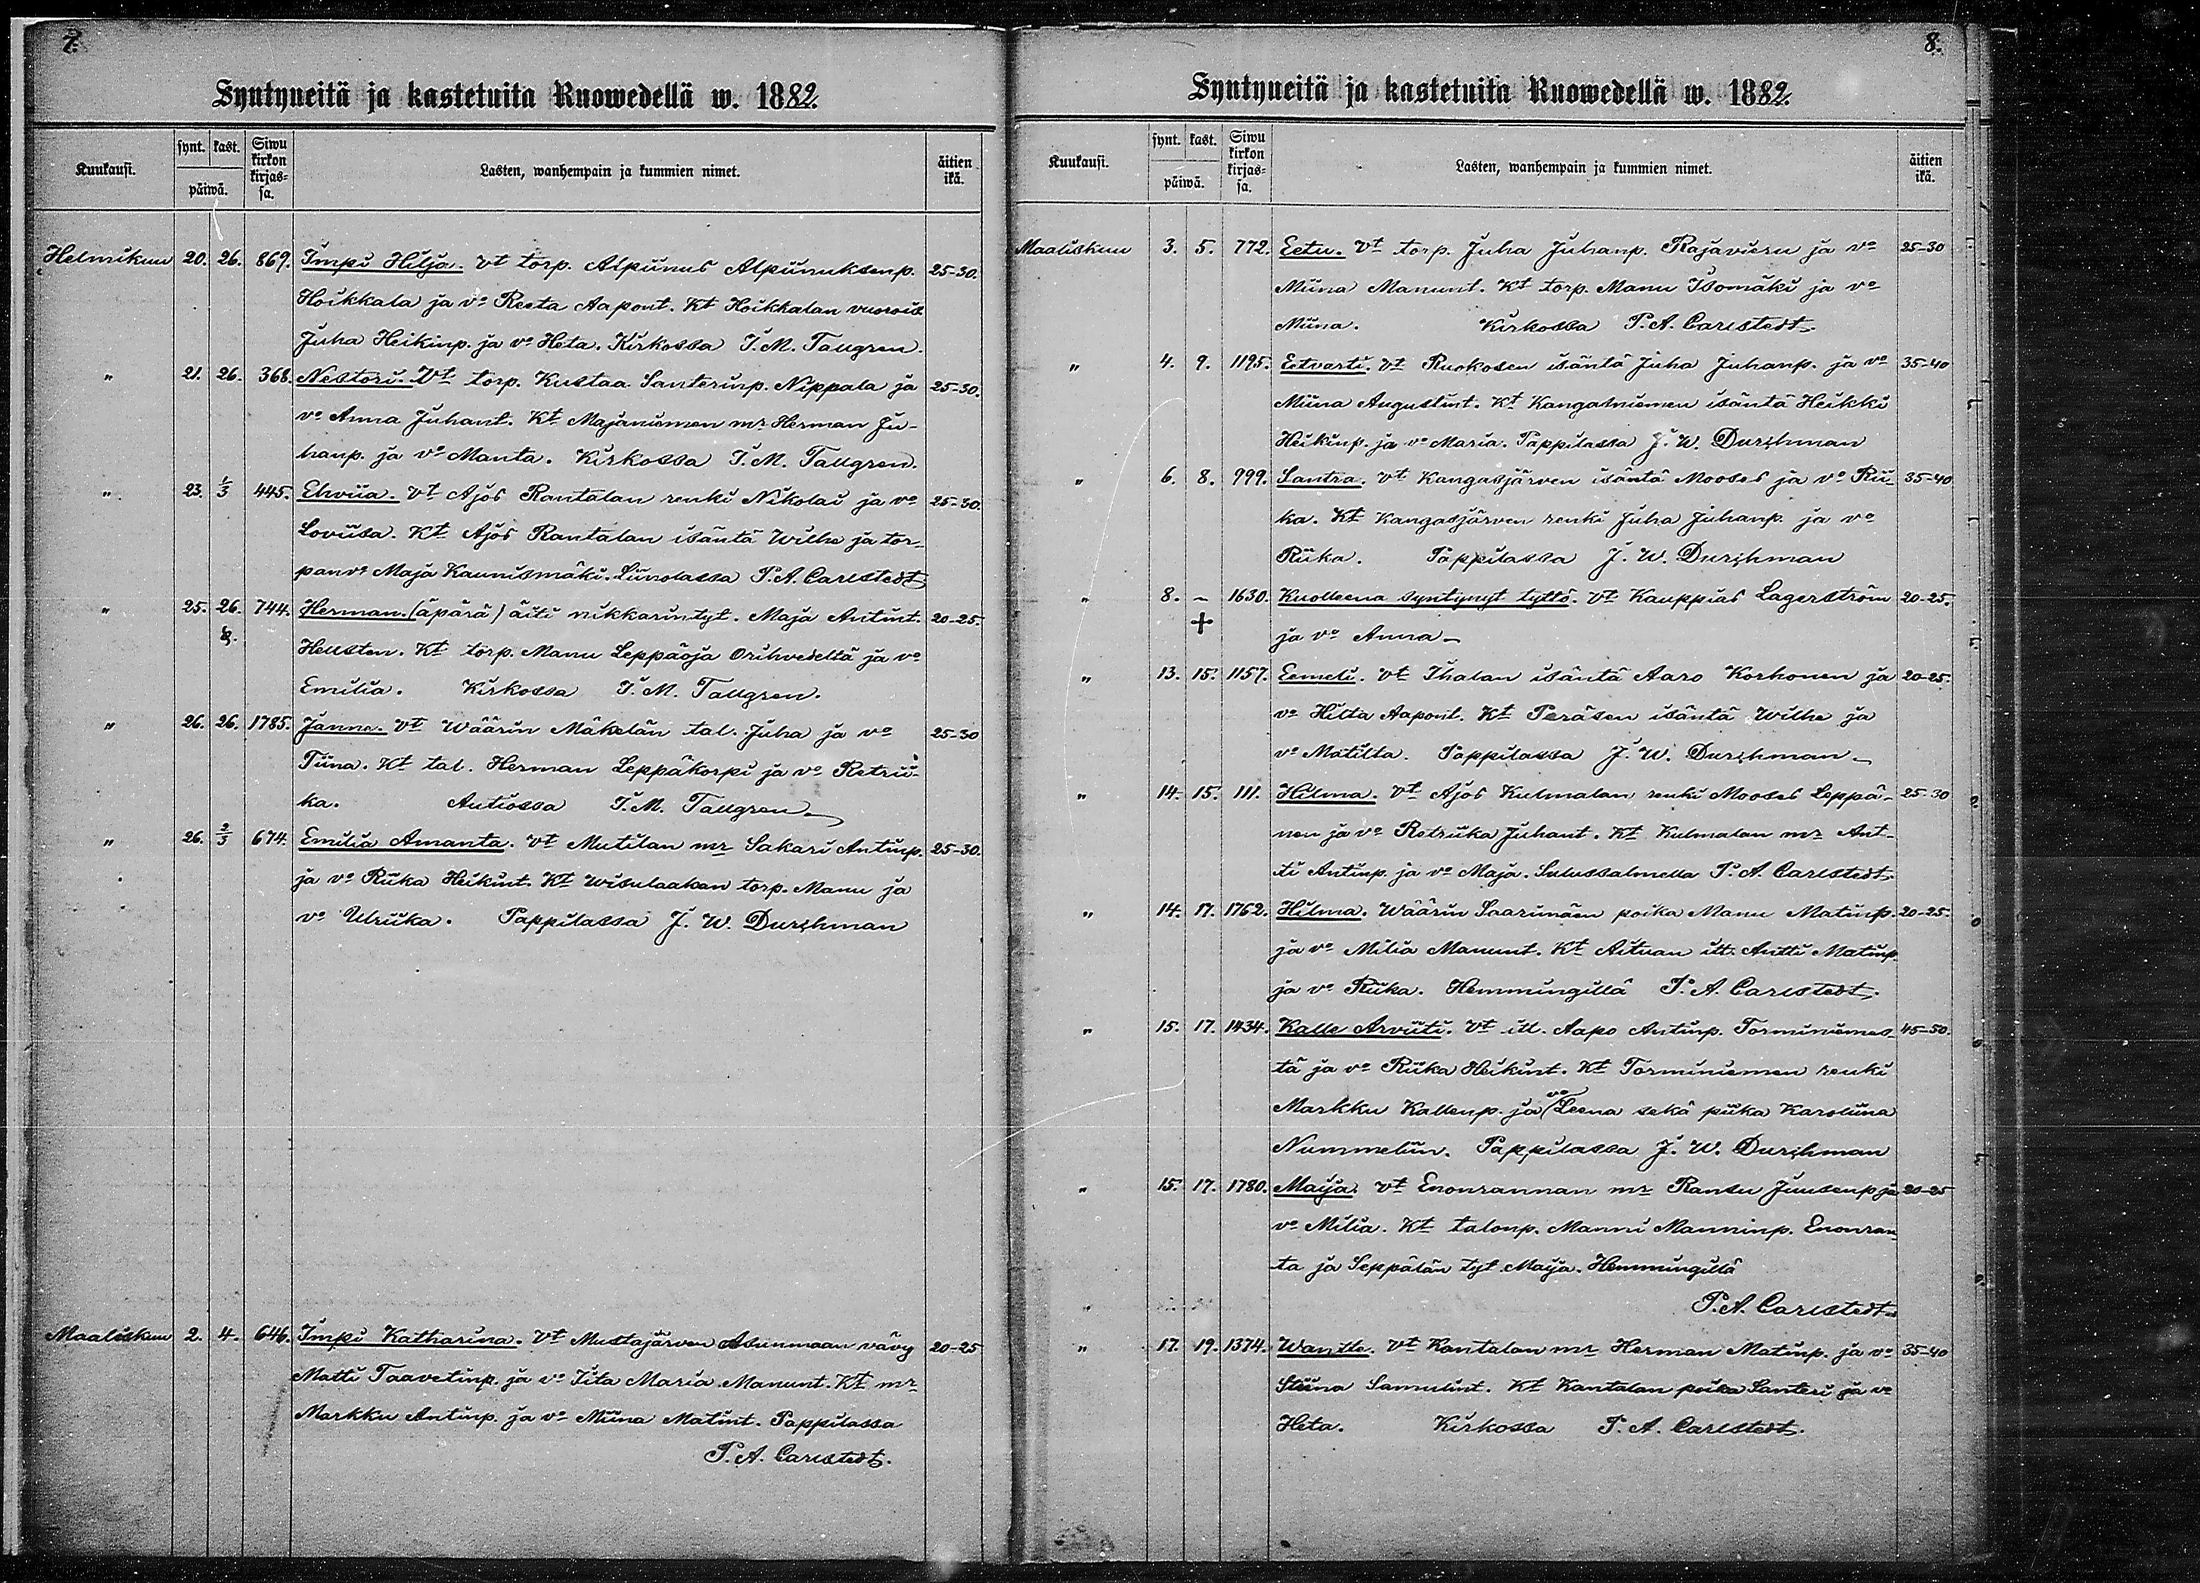 7.
Syntyneitä ja kastetuita Ruowedellä w. 1882.
Kuukausi. synt. kast. päiwä. Siwu kirkon kirjas-sa. Lasten, wanhempain ja kummien nimet. äitien ikä.
Helmikuu 20. 26. 869. Impi Hilja. Vt torp. Alpiinus Alpiinuksenp. 25-30.
Hoikkala ja vo Reeta Aapont. Kt Hoikkalan vuorois
Juha Heikinp. ja vo Heta. Kirkossa I. M. Tallgren.
" 21. 26. 368. Nestori. Vt torp. Kustaa Santerinp. Nippala ja 25-30.
vo Anna Juhant. Kt Majaniemen mr Herman Ju-
hanp. ja vo Manta. Kirkossa I. M. Tallgren.
" 23. 1/3 445. Elviia. Vt Ajos Rantalan renki Nikolai ja vo 25-30.
Loviisa. Kt Ajos Rantalan isäntä Wilhe ja tor-
panvo Maja Kaunismäki. Liinolassa P. A. Carlstedt
" 25. 26. 744. Herman. (äpärä) äiti nikkarintyt. Maja Antint. 20-25.
Hellsten. Kt torp. Manu Leppäoja Orihvedeltä ja vo
Emilia. Kirkossa I. M. Tallgren.
" 26. 26. 1785. Janne. Vt Wäärin Mäkelän tal. Juha ja vo 25-30
Tiina. Kt tal. Herman Leppäkorpi ja vo Retrii-
ka. Autiossa I. M. Tallgren
" 26. 2/3 674. Emilia Amanta. Vt Mutilan mr Sakari Antinp. 25-30.
ja vo Riika Heikint. Kt Wisulaahan torp. Manu ja
vo Ulriika. Pappilassa J. W. Durchman
Maaliskuu 2. 4. 646. Impi Katharina. Vt Mustajärven Asunmaan vävy 20-25
Matti Taavetinp. ja vo Iita Maria Manunt. Kt mr
Markku Antinp. ja vo Miina Matint. Pappilassa
P. A. Carlstedt.
8.
Syntyneitä ja kastetuita Ruowedellä w. 1882.
Kuukausi. synt. kast. päiwä. Siwu kirkon kirjas-sa. Lasten, wanhempain ja kummien nimet. äitien ikä.
Maaliskuu 3. 5. 772. Eetu. Vt torp. Juha Juhanp. Rajavieru ja vo 25-30
Miina Manunt. Kt torp. Manu Isomäki ja vo
Miina. Kirkossa P. A. Carlstedt
" 4. 9. 1195. Eetvarti. Vt Ruokosen isäntä Juha Juhanp. ja vo 35-40
Miina Augustint. Kt Kangasniemen isäntä Heikki
Heikinp. ja vo Maria. Pappilassa J. W. Durchman
" 6. 8. 999. Santra. Vt Kangasjärven isäntä Mooses ja vo Rii- 35-40
ka. Kt Kangasjärven renki Juha Juhanp. ja vo
Riika. Pappilassa J. W. Durchman
" 8. - 1630. Kuolleena syntynyt tyttö. Vt Kauppias Lagerström 20-25.
+ ja vo Anna
" 13. 15. 1157. Eemeli. Vt Ihalan isäntä Aaro Korhonen ja 20-25.
vo Hilta Aapont. Kt Peräsen isäntä Wilhe ja
vo Matilta. Pappilassa J. W. Durchman
" 14. 15. 111. Hilma. Vt Ajos Kulmalan renki Mooses Leppä- 25-30
nen ja vo Retriika Juhant. Kt Kulmalan mr Ant-
ti Antinp. ja vo Maja. Sulussalmella P. A. Carlstedt.
" 14. 17. 1762. Hilma. Wäärin Saarimäen poika Manu Matinp. 20-25.
ja vo Milia Manunt. Kt Aituan itt. Antti Matinp.
ja vo Riika. Hemmingillä P. A. Carlstedt.
" 15. 17. 1434. Kalle Arviiti. Vt itt. Aapo Antinp. Torminiemes- 45-50.
tä ja vo Riika Heikint. Kt Torminiemen renki
Markku Kallenp. ja vo Leena sekä piika Karoliina
Nummeliin. Pappilassa J. W. Durchman
" 15. 17. 1780. Maija. Vt Enonrannan mr Ransu Juusenp. ja 20-25
vo Milia. Kt talonp. Manni Manninp. Enonran-
ta ja Seppälän tyt. Maija. Hemmingillä
" P. A. Carlstedt
" 17. 19. 1374. Wantte. Vt Kantalan mr Herman Matinp. ja vo 35-40
Stiina Samulint. Kt Kantalan poika Santeri ja vo
Heta. Kirkossa P. A. Carlstedt.